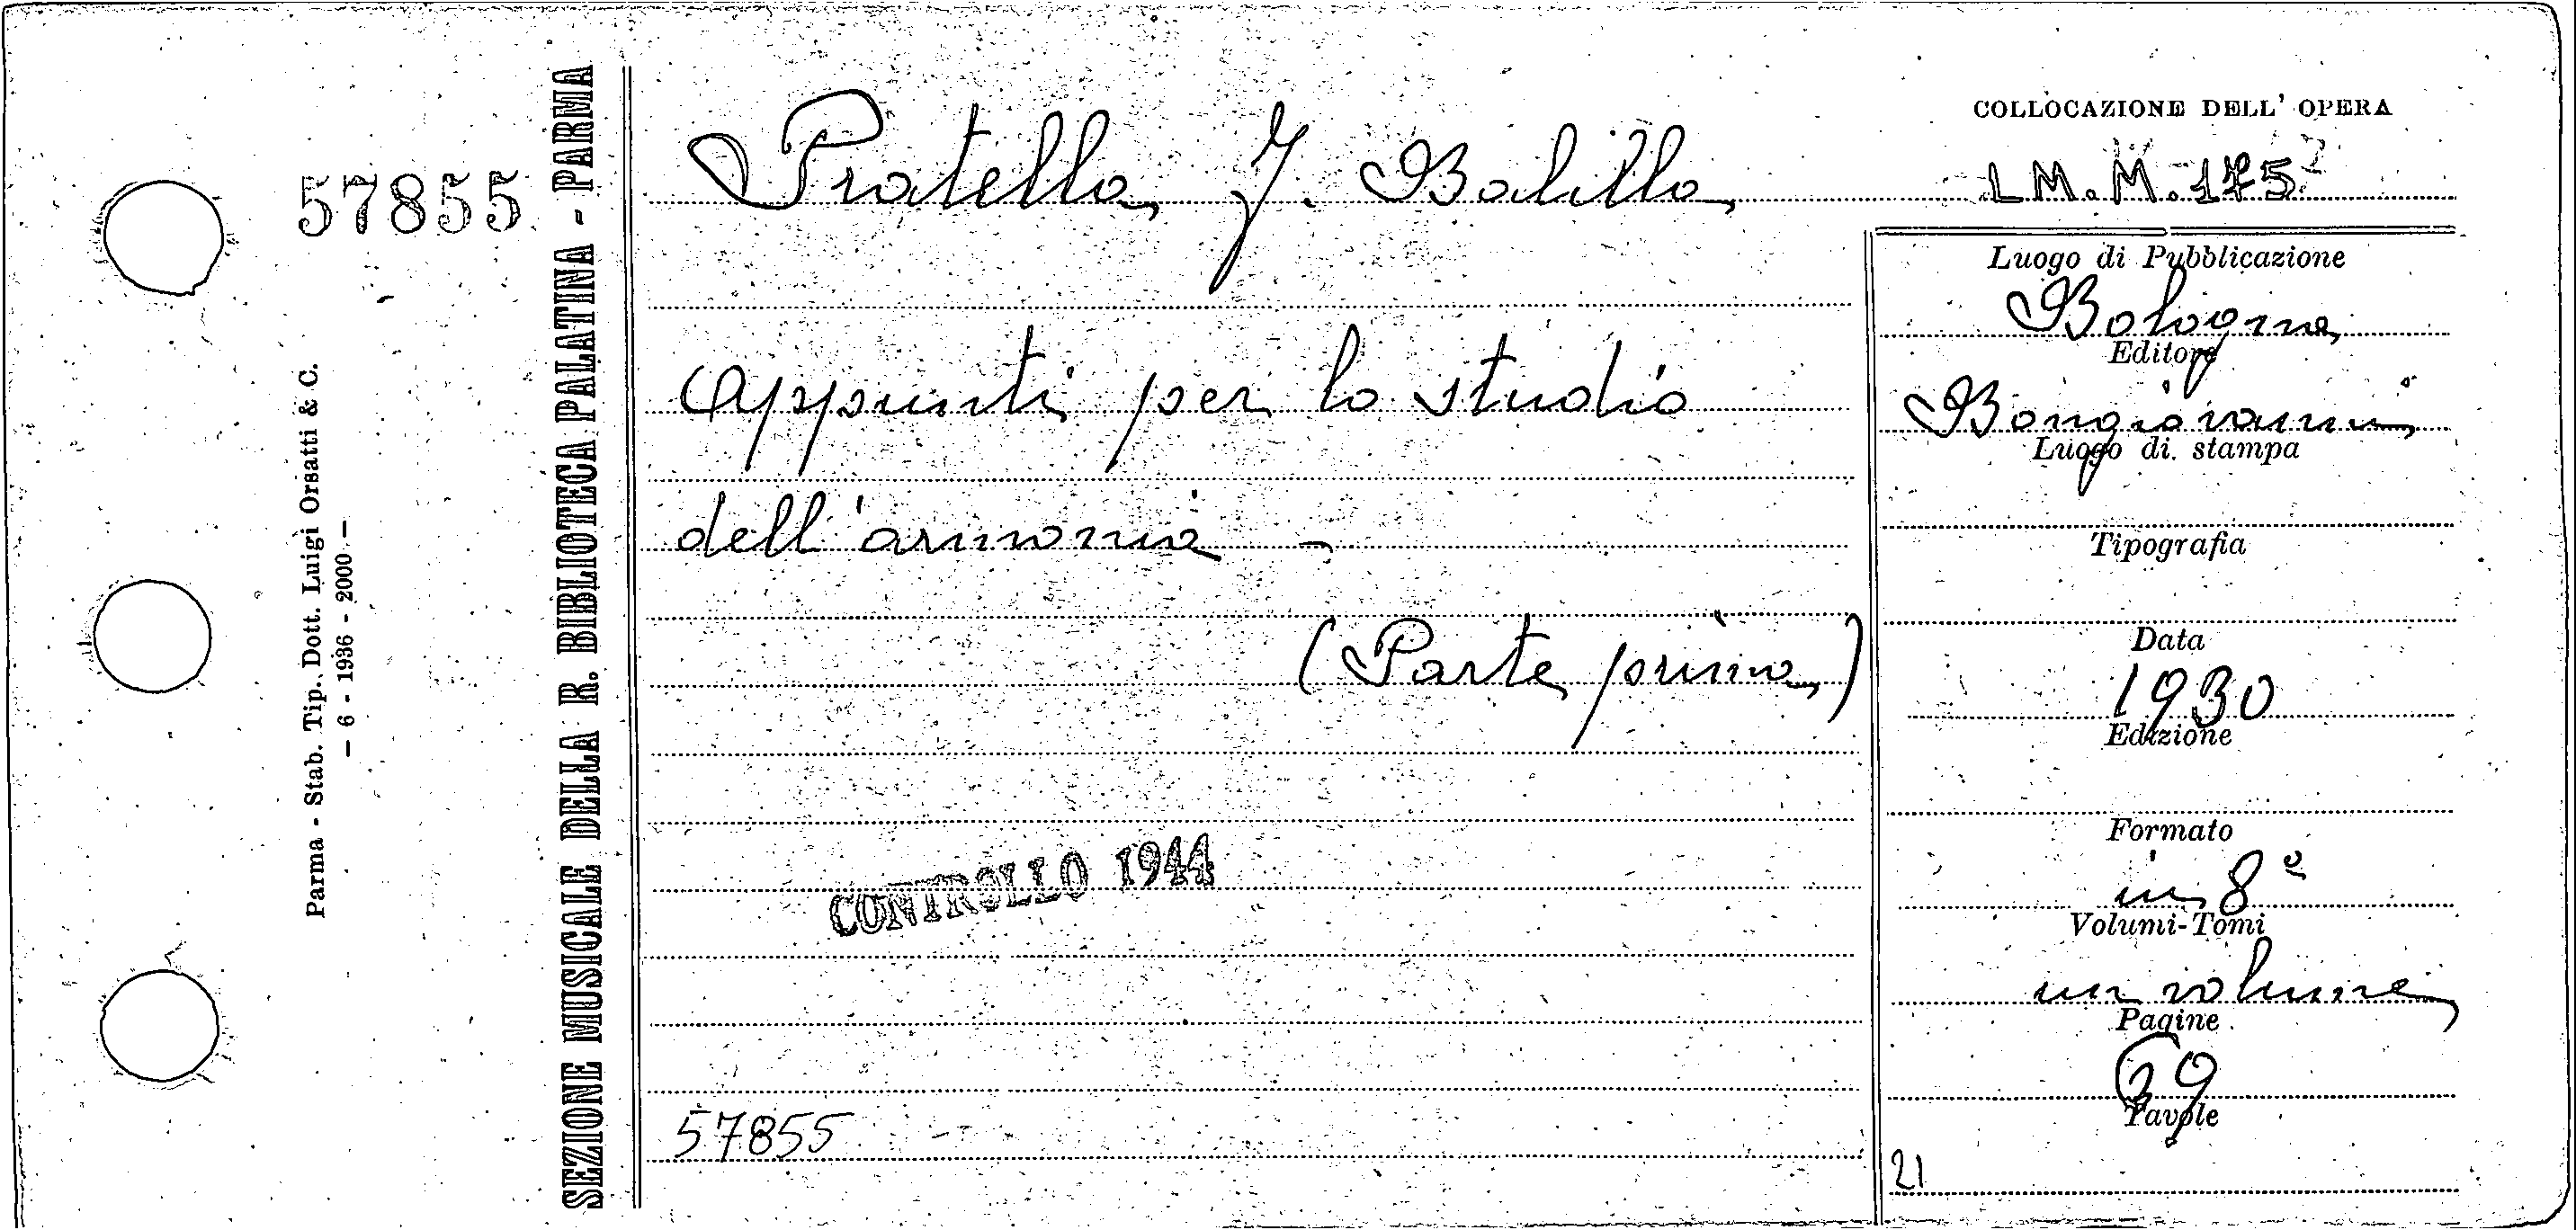 57855
Parma - Stab. Tip. Dott. Luigi Orsatti & C.
— 6 - 1936 - 2000 —
SEZIONE MUSICALE DELLA R. BIBLIOTECA PALATINA - PARMA
Pratella J. Balilla
Appunti per lo studio
dell'armonia -
(Parte prima)
CONTROLLO 1944
57855
COLLOCAZIONE DELL' OPERA
LM. M. 175
Luogo di Pubblicazione
Bologna
Editore
Bongiovanni
Luogo di stampa
Tipografia
Data
1930
Edizione
Formato
in 8º
Volumi-Tomi
un volume
Pagine
69
Tavole
21